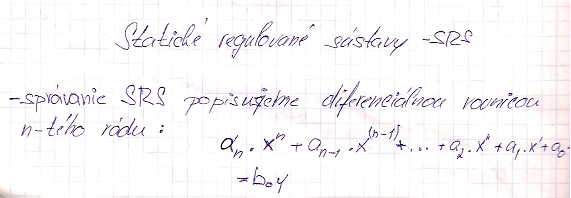 Statické regulované sústavy - SRS
- správanie SRS popisujeme diferenciálnou rovnicou
n-tého rádu :
aₙ . xⁿ + aₙ₋₁ . x⁽ⁿ⁻¹⁾ + ... + a₂ . x'' + a₁ . x' + a₀ .
= b₀ y